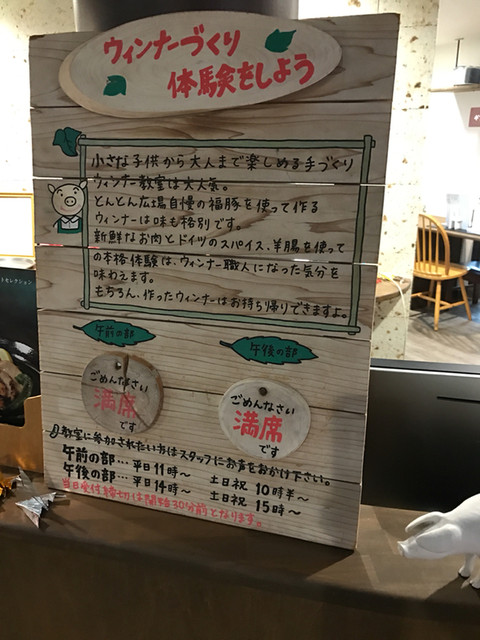 ウィンナーづくり
体験をしよう
小さな子供から大人まで楽しめる手づくり
ウィンナー教室は大人気。
とんとん広場自慢の福豚を使って作る
ウィンナーは味も格別です。
新鮮なお肉とドイツのスパイス、羊腸を使って
の本格体験は、ウィンナー職人になった気分を
味わえます。
もちろん、作ったウィンナーはお持ち帰りできますよ。
午前の部
午後の部
ごめんなさい
満席
です
ごめんなさい
満席
です
教室に参加されたい方はスタッフにお声をおかけ下さい。
午前の部…平日11時〜 土日祝10時半〜
午後の部…平日14時〜 土日祝15時〜
当日受付締切は開始30分前となります。